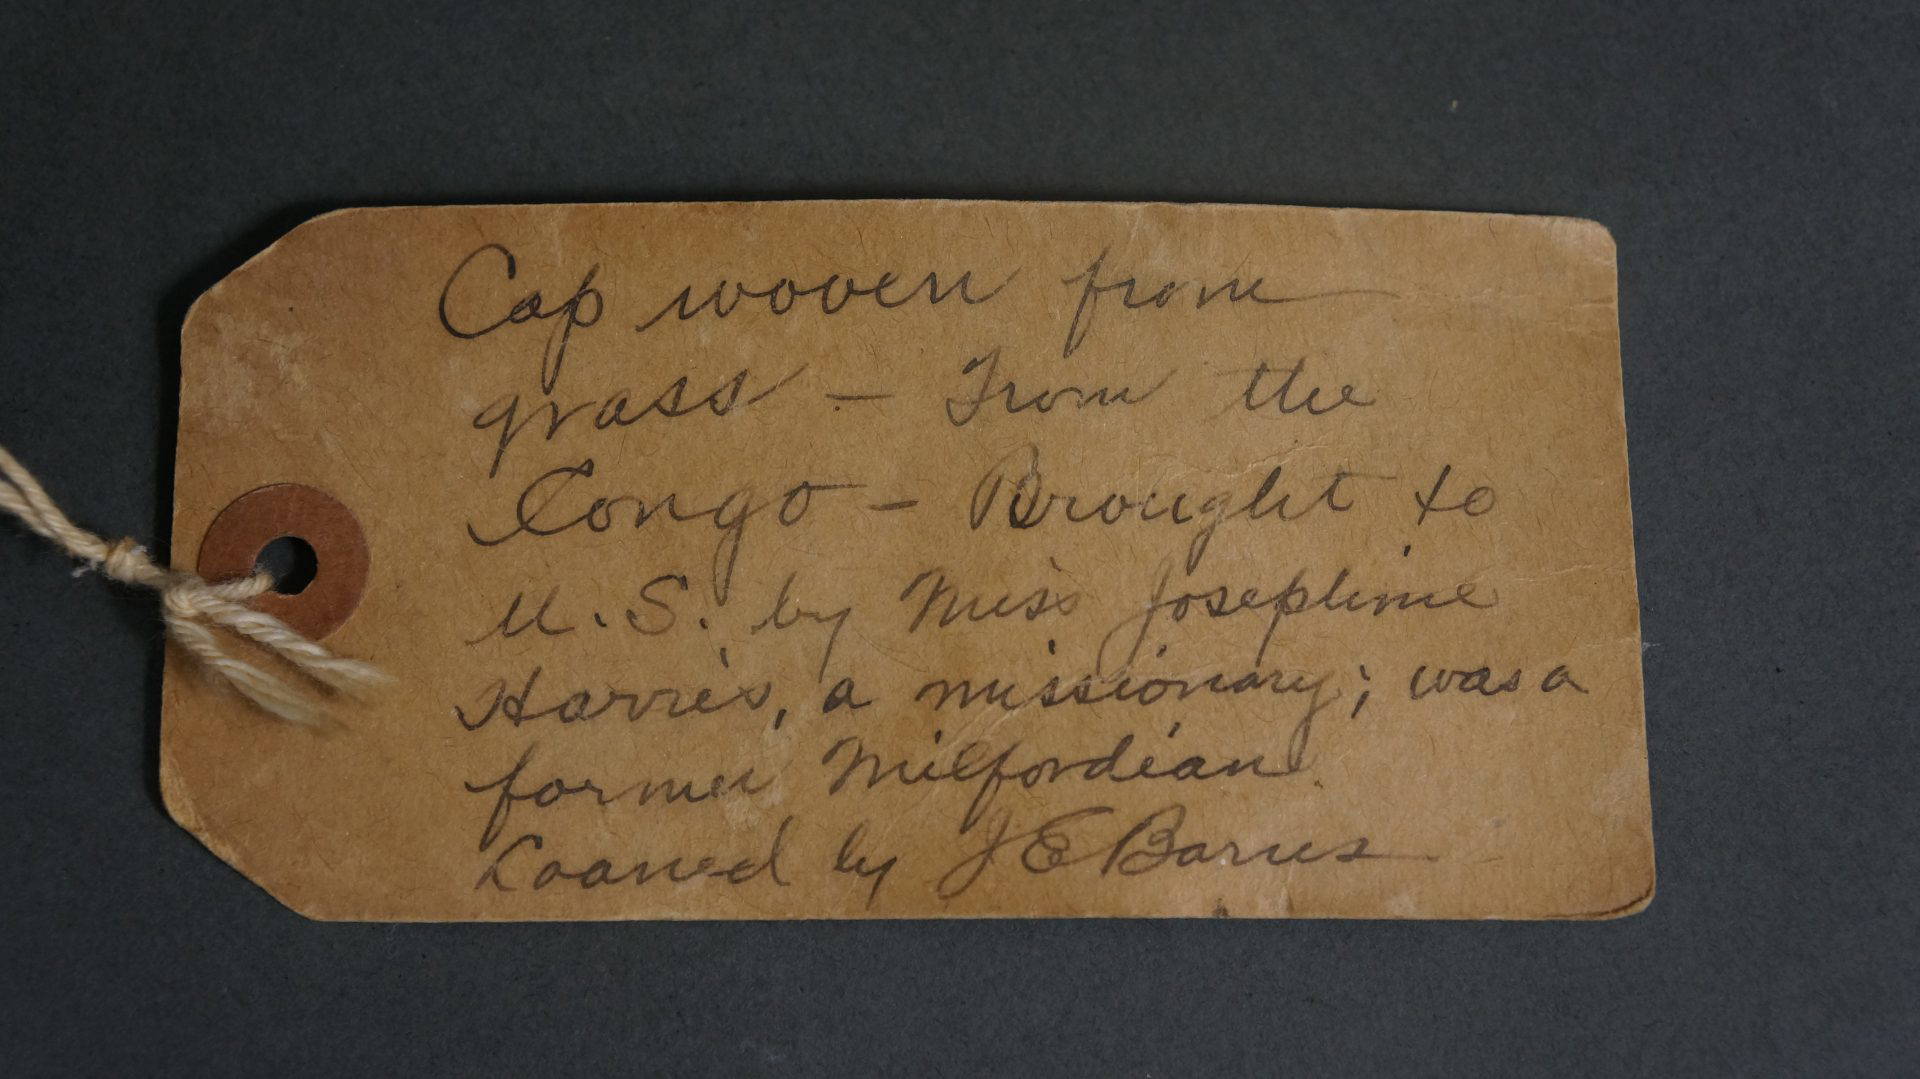 Cap woven from
grass – From the
Congo – Brought to
U.S. by Miss Josephine
Harris, a missionary; was a
former Milfordian.
Loaned by J E Barnes